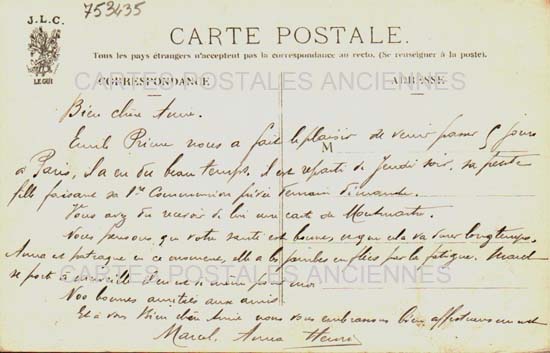 753435
J.L.C.
LE GUI
CARTE POSTALE.
Tous les pays étrangers n'acceptent pas la correspondance au recto. (Se renseigner à la poste).
CARTES POSTALES ANCIENNES
CORRESPONDANCE
ADRESSE
Bien chère Amie.
Emile Prime nous a fait le plaisir de venir passer 5 jours
M
à Paris, il a eu du beau temps, il est reparti Jeudi soir, sa petite
fille faisant sa 1re Communion privée demain dimanche.
Vous avez du recevoir de lui une carte de Montmartre.
Nous pensons que votre santé est bonne, et que cela va durer longtemps,
Anna est patraque en ce moment, elle a les jambes enflées par la fatigue. Marcel
se porte à merveille il en est de même pour moi
CARTES POSTALES ANCIENNES
Nos bonnes amitiés aux amis
Et à vous Bien chère Amie nous vous embrassons bien affectueusement
Marcel Anna Henri